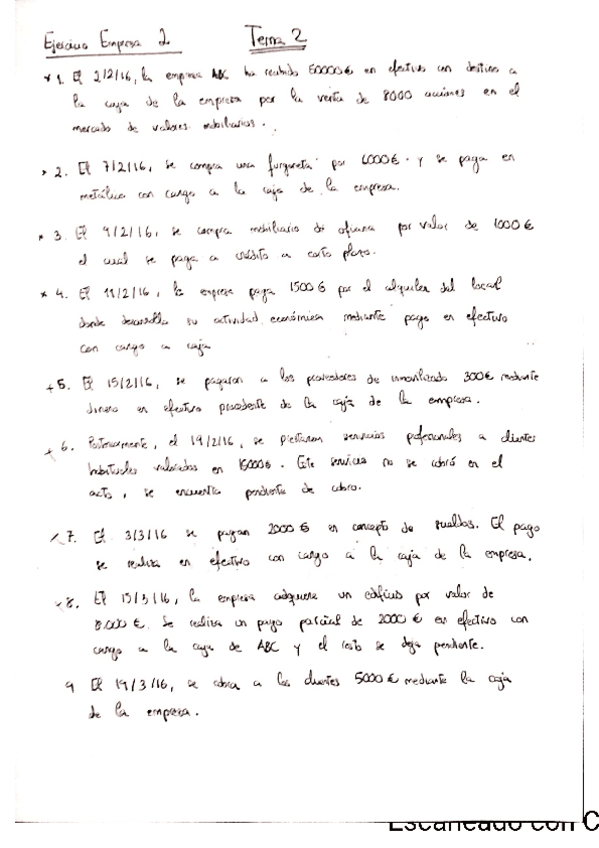 Ejercicio Empresa 2 Tema 2
* 1. El 2/2/16, la empresa ABC ha recibido 60000€ en efectivo con destino a
la caja de la empresa por la venta de 8000 acciones en el
mercado de valores mobiliarios.
* 2. El 7/2/16, se compra una furgoneta por 6000€ y se paga en
metálico con cargo a la caja de la empresa.
* 3. El 9/2/16, se compra mobiliario de oficina por valor de 1000€
el cual se paga a crédito a corto plazo.
* 4. El 11/2/16, la empresa paga 1500€ por el alquiler del local
donde desarrolla su actividad económica mediante pago en efectivo
con cargo a caja
+ 5. El 15/2/16, se pagaron a los proveedores de inmovilizado 300€ mediante
dinero en efectivo procedente de la caja de la empresa.
+ 6. Posteriormente, el 19/2/16, se prestaron servicios profesionales a clientes
habituales valorados en 15000€. Este servicio no se cobró en el
acto, se encuentra pendiente de cobro.
7. El 3/3/16 se pagan 2000€ en concepto de sueldos. El pago
se realiza en efectivo con cargo a la caja de la empresa.
8. El 15/3/16, la empresa adquiere un edificio por valor de
8.000€. Se realiza un pago parcial de 2000€ en efectivo con
cargo a la caja de ABC y el resto se deja pendiente.
9 El 19/3/16, se cobra a los clientes 5000€ mediante la caja
de la empresa.
Escaneado con C